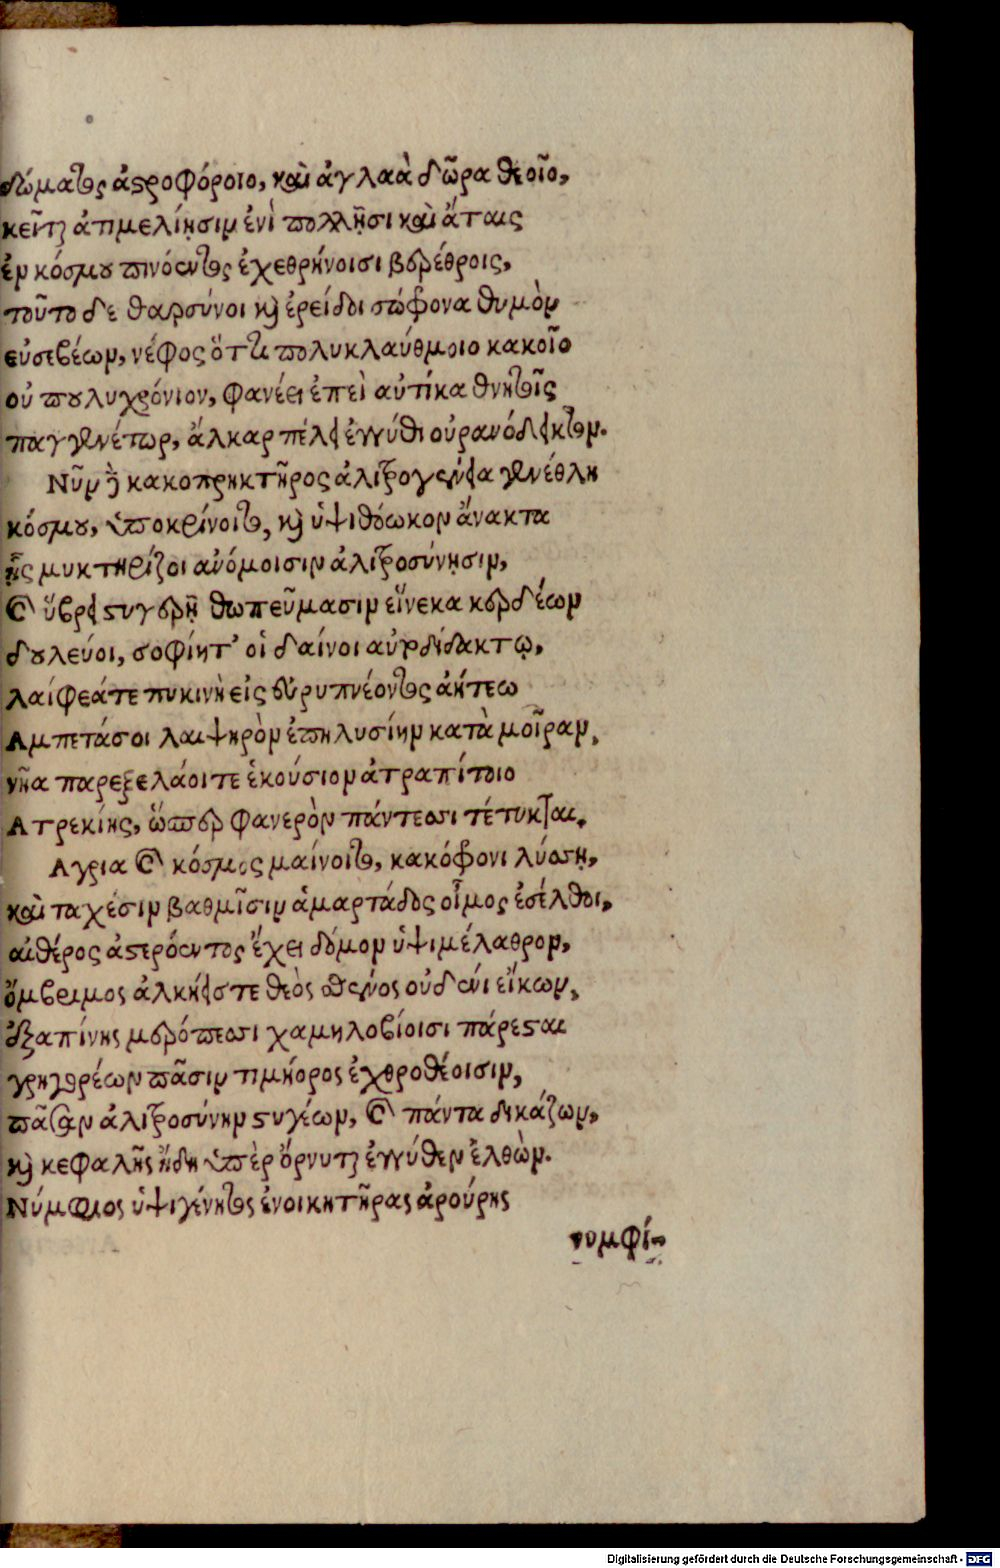 δώματος ἀστροφόροιο, καὶ ἀγλαὰ δῶρα θεοῖο,
κεῖνται ἀτιμελίῃσιν ἐνὶ πολλῇσι καὶ ἄταις
ἐν κόσμου πινόεντος ἐχεθρήνοισι βερέθροις,
τοῦτο δὲ θαρσύνοι καὶ ἐρείδοι σώφρονα θυμὸν
εὐσεβέων, νέφος ὅττι πολυκλαύθμοιο κακοῖο
οὐ πουλυχρόνιον, φανέει ἐπεὶ αὐτίκα θνητοῖς
παγγενέτωρ, ἄλκαρ πέλει ἐγγύθι οὐρανόδεικτον.
Νῦν δὲ κακοπρηκτῆρος ἀλιτρογένεια γενέθλη
κόσμου, ὑποκρίνοιτο, καὶ ὑψιθόωκον ἄνακτα
ᾗς μυκτηρίζοι ἀνόμοισιν ἀλιτροσύνῃσιν,
καὶ ὕβρει στυγερῇ θωπεῦμασιν εἵνεκα κερδέων
δουλεύοι, σοφίητ' οἱ δαίνοι αὐτοδίδακτῳ,
λαίφεά τε πυκινὴ εἰς εὐρυπνέοντος ἀήτεω
Αμπετάσοι λαιψηρὸν ἐπηλυσίην κατὰ μοῖραν,
νῆα παρεξελάοιτε ἑκούσιον ἀτραπίτοιο
Ατρεκίης, ὥσπερ φανερὸν πάντεσσι τέτυκται.
Αγρια καὶ κόσμος μαίνοιτο, κακόφρονι λύσσῃ,
καὶ ταχέσιν βαθμῖσιν ἁμαρτάδος οἶμος ἐσέλθοι,
αἰθέρος ἀστερόεντος ἔχει δόμον ὑψιμέλαθρον,
ὄμβριμος ἀλκήεις τε θεὸς σθένος οὐδενὶ εἴκων,
ἐξαπίνης μερόπεσσι χαμηλοβίοισι πάρεσται
γρηγορέων πᾶσιν τιμήορος ἐχθροθέοισιν,
πᾶσαν ἀλιτροσύνην στυγέων, καὶ πάντα δικάζων,
καὶ κεφαλῆς ἤδη ὑπὲρ ὄρνυται ἐγγύθεν ἐλθὼν.
Νύμφιος ὑψιγένητος ἐνοικητῆρας ἀρούρης
νυμφί-
Digitalisierung gefördert durch die Deutsche Forschungsgemeinschaft - DFG